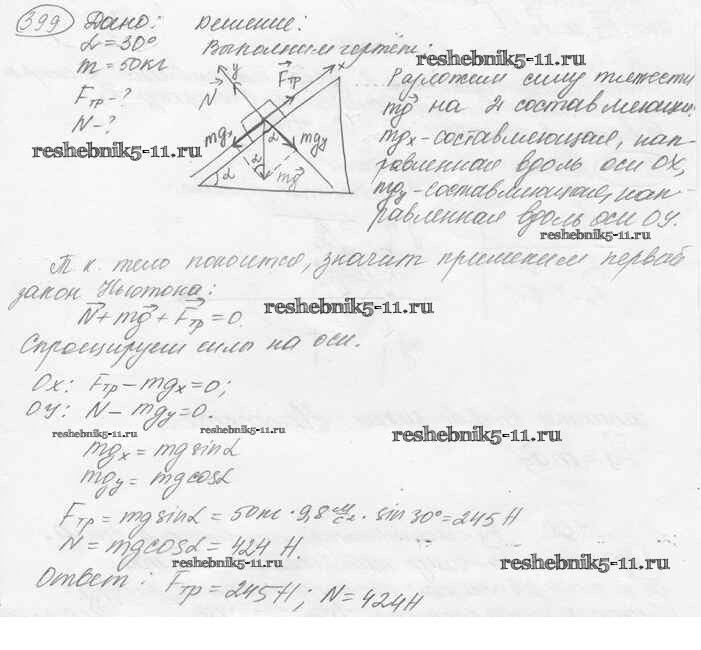 399 Дано: Решение:
α = 30° Выполним чертёж:
m = 50 кг
Fтр - ?
N - ?
reshebnik5-11.ru
reshebnik5-11.ru
y
x
N
Fтр
mgx
mgy
α
α
α
mg
Разложим силу тяжести
mg на 2 составляющих:
mgx - составляющая, нап-
равленная вдоль оси OX,
mgy - составляющая, нап-
равленная вдоль оси OY.
reshebnik5-11.ru
Т.к. тело покоится, значит применяем первый
закон Ньютона:
N + mg + Fтр = 0.
reshebnik5-11.ru
Спроецируем силы на оси.
OX: Fтр - mgx = 0;
OY: N - mgy = 0.
reshebnik5-11.ru
reshebnik5-11.ru
reshebnik5-11.ru
mgx = mg sinα
mgy = mg cosα
Fтр = mg sinα = 50 кг · 9,8 м/с² · sin 30° = 245 Н
N = mg cosα = 424 Н.
reshebnik5-11.ru
reshebnik5-11.ru
Ответ: Fтр = 245 Н; N = 424 Н